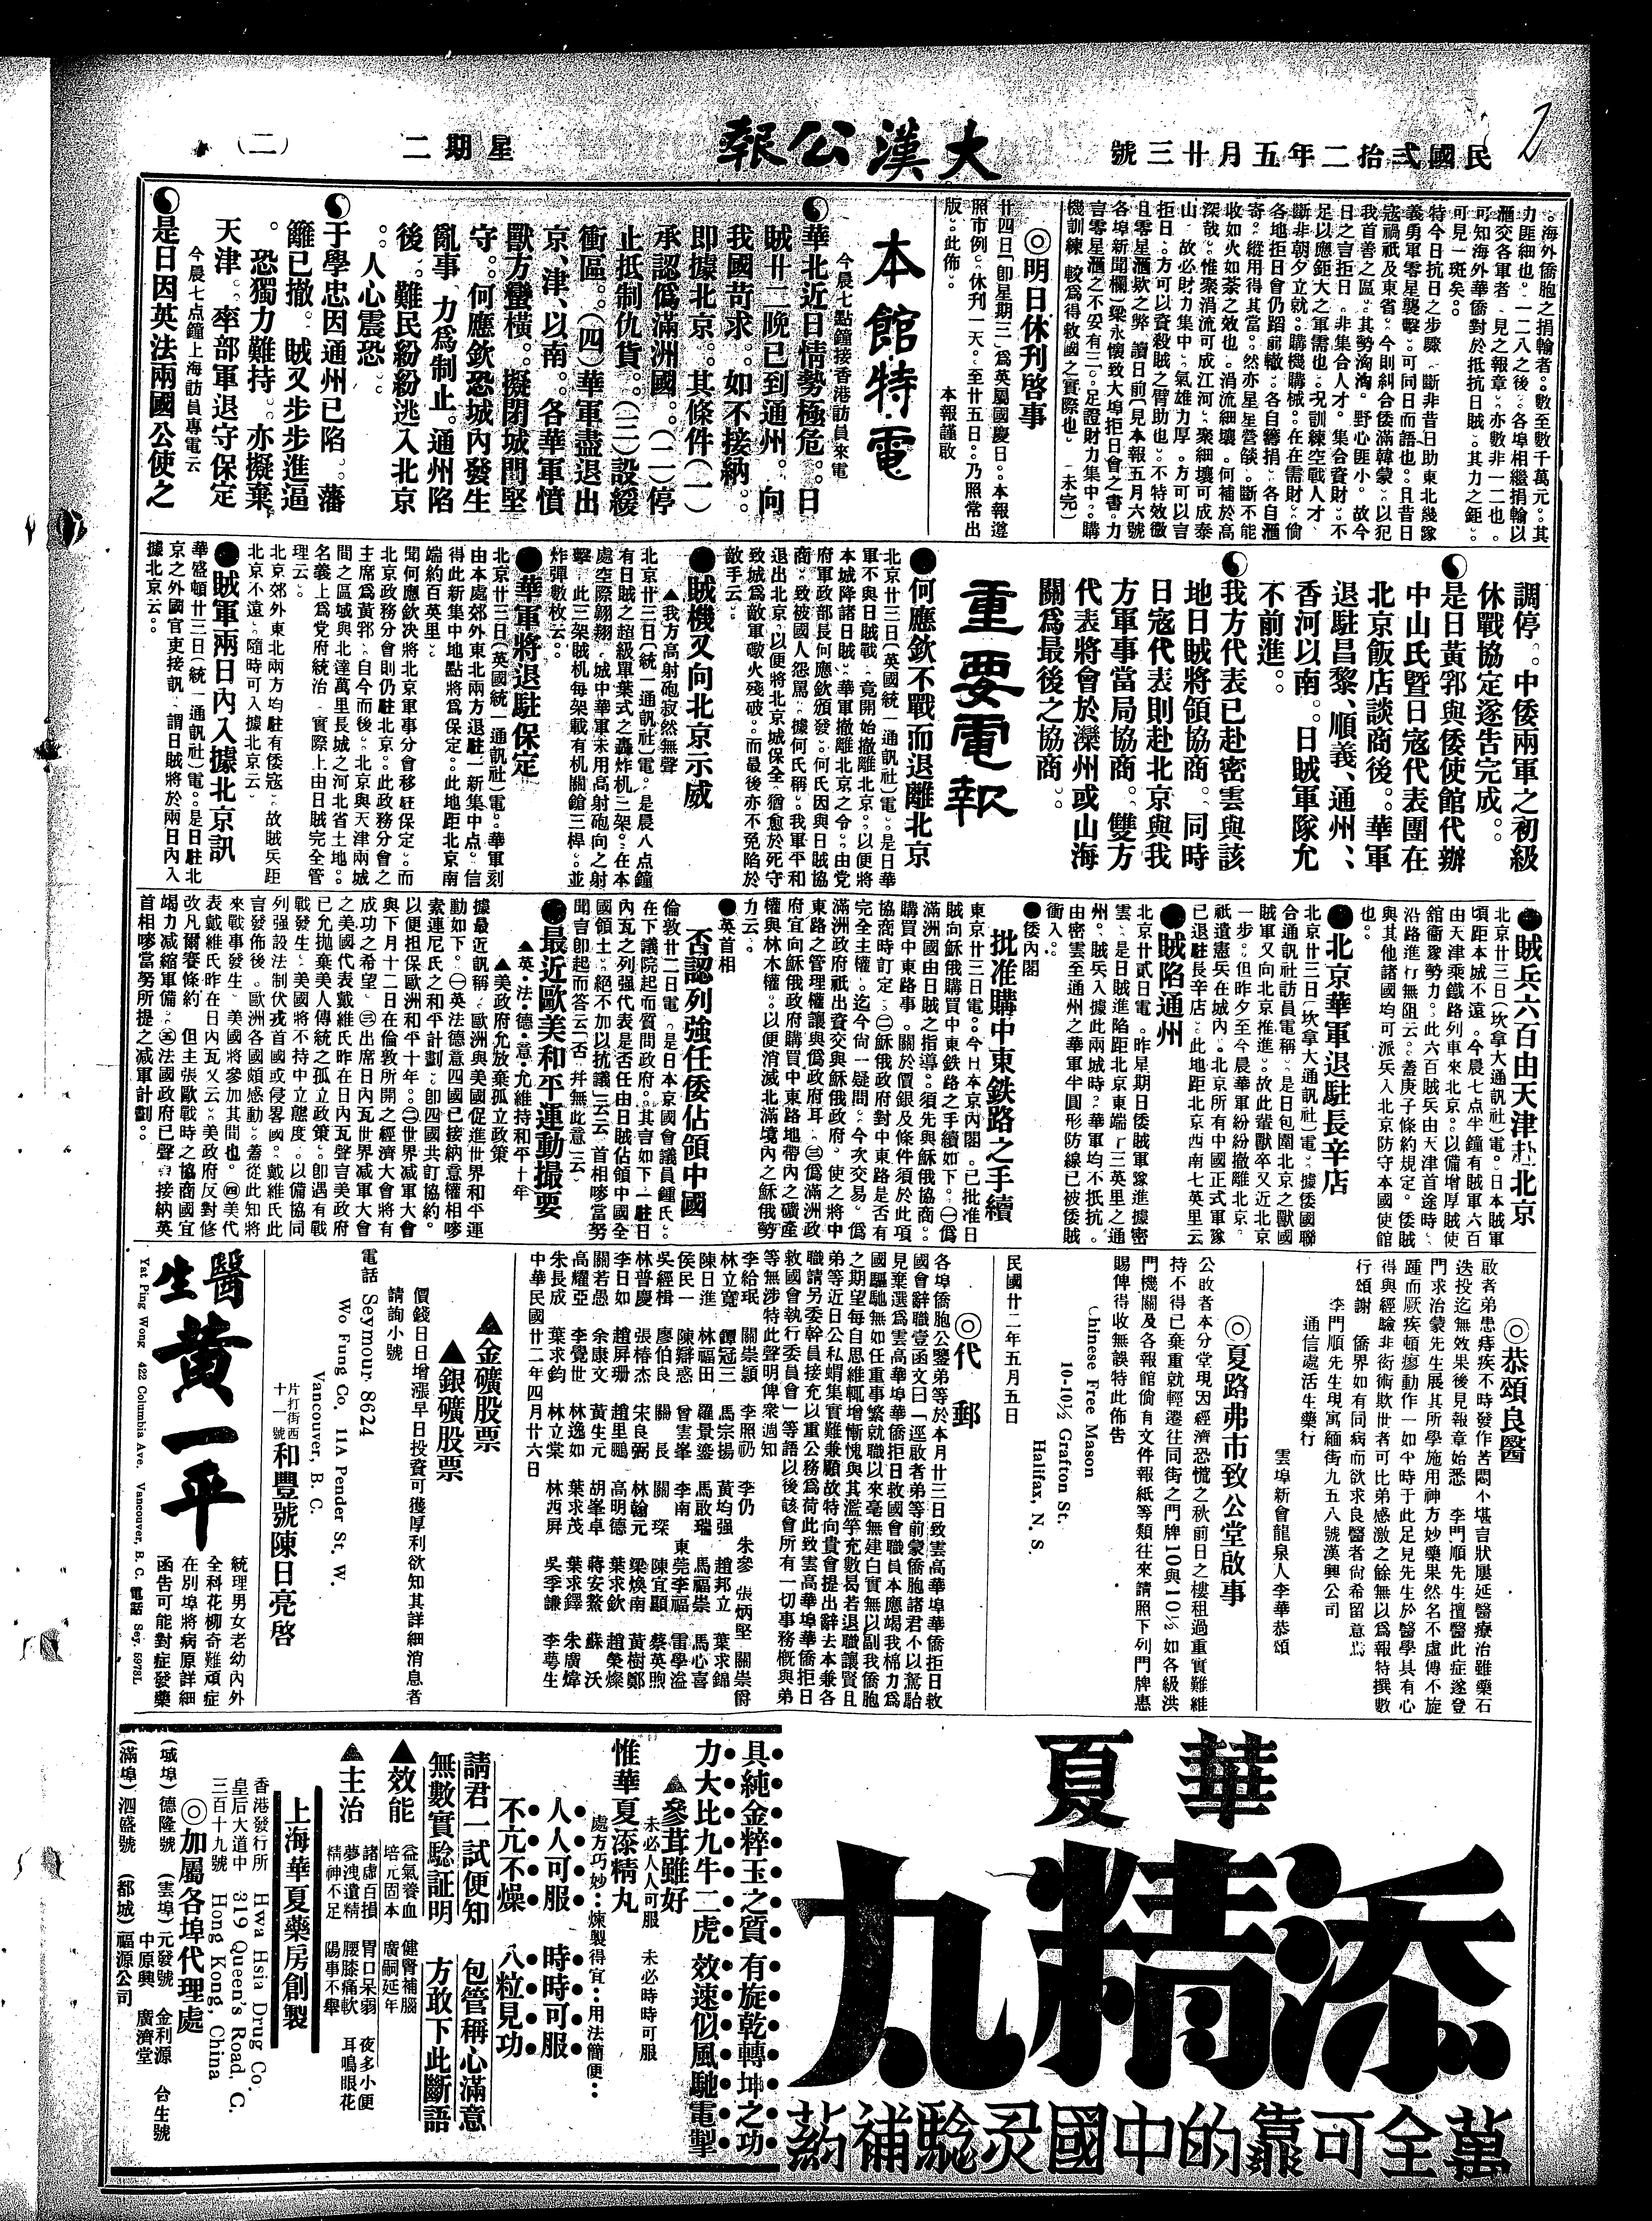 民國弍拾二年五月廿三號
大漢公報
星期二
(二)
。海外僑胞之捐輸者。數至數千萬元。其
力匪細也。一二八之後。各埠相繼捐輸以
滙交各軍者。見之報章。亦數非一二也。
可知海外華僑對於抵抗日賊。其力之鉅。
可見一斑矣。
特今日抗日之步驟。斷非昔日助東北幾隊
義勇軍零星襲擊。可同日而語也。且昔日
寇禍祇及東省。今則糾合倭滿韓蒙。以犯
我首善之區。其勢洶洶。野心匪小。故今
日之言拒日。非集合人才。集合資財。不
足以應鉅大之軍需也。况訓練空戰人才。
斷非朝夕立就。購機購械。在在需財。倘
各地拒日會仍蹈前轍。各自籌捐。各自滙
寄。縱用得其當。然亦星星營燄。斷不能
收如火如荼之效也。涓流細壤。何補於高
深哉。惟衆涓流可成江河。聚細壤可成泰
山。故必財力集中。氣雄力厚。方可以言
拒日。方可以資殺賊之臂助也。不特效徵
且零星滙欵之弊。讀日前(見本報五月六號
各埠新聞欄)梁永懷致大埠拒日會之書。力
言零星滙之不妥有三。足證財力集中。購
機訓練。較爲得救國之實際也。(未完)
◎明日休刊啓事
廿四日(卽星期三)爲英屬國慶日。本報遵
照市例。休刊一天。至廿五日。乃照常出
版。此佈。
本報謹啟
本館特電
今晨七點鐘接香港訪員來電
華北近日情勢極危。日
賊廿二晚已到通州。向
我國苛求。如不接納。
即據北京。其條件(一)
承認僞滿洲國。(二)停
止抵制仇貨。(三)設緩
衝區。(四)華軍盡退出
京、津、以南。各華軍憤
獸方蠻橫。擬閉城門堅
守。何應欽恐城內發生
亂事。力爲制止。通州陷
後。難民紛紛逃入北京
。人心震恐。
于學忠因通州已陷。藩
籬已撤。賊又步步進逼
。恐獨力難持。亦擬棄
天津。率部軍退守保定
今晨七点鐘上海訪員專電云
是日因英法兩國公使之
調停。中倭兩軍之初級
休戰協定遂告完成。
是日黃郛與倭使館代辦
中山氏暨日寇代表團在
北京飯店談商後。華軍
退駐昌黎、順義、通州、
香河以南。日賊軍隊允
不前進。
我方代表已赴密雲與該
地日賊將領協商。同時
日寇代表則赴北京與我
方軍事當局協商。雙方
代表將會於灤州或山海
關爲最後之協商。
重要電報
●何應欽不戰而退離北京
北京廿三日(英國統一通訊社)電。是日華
軍不與日賊戰。竟開始撤離北京。以便將
本城降諸日賊。華軍撤離北京之令。由党
府軍政部長何應欽頒發。何氏因與日賊協
商。致被國人怨罵。據何氏稱。我軍平和
退出北京。以便將北京城保全。猶愈於死守
致城爲敵軍礮火殘破。而最後亦不免陷於
敵手云。
●賊機又向北京示威
▲我方高射砲寂然無聲
北京廿三日(統一通訊社)電。是晨八点鐘
有日賊之超級單葉式之轟炸机三架。在本
處空際翱翔。城中華軍未用高射砲向之射
擊。此三架賊机每架載有机關鎗三桿。並
炸彈數枚云。
●華軍將退駐保定
北京廿三日(英國統一通訊社)電。華軍刻
由本處郊外東北兩方退駐一新集中点。信
得此新集中地點將爲保定。此地距北京南
端約百英里。
聞何應欽决將北京軍事分會移駐保定。而
北京政務分會則仍駐北京。此政務分會之
主席爲黃郛。自今而後。北京與天津兩城
間之區域與北達萬里長城之河北省土地。
名義上爲党府統治。實際上由日賊完全管
理云。
北京郊外東北兩方均駐有倭寇。故賊兵距
北京不遠。隨時可入據北京云。
●賊軍兩日內入據北京訊
華盛頓廿三日(統一通訊社)電。是日駐北
京之外國官吏接訊。謂日賊將於兩日內入
據北京云。
●賊兵六百由天津赴北京
北京廿三日(坎拿大通訊社)電。日本賊軍
頃距本城不遠。今晨七点半鐘有賊軍六百
由天津乘鐵路列車來北京。以備增厚賊使
館衞隊勢力。此六百賊兵由天津首途時。
沿路進行無阻云。蓋庚子條約規定。倭賊
與其他諸國均可派兵入北京防守本國使館
也。
●北京華軍退駐長辛店
北京廿三日(坎拿大通訊社)電。據倭國聯
合通訊社訪員電稱。是日包圍北京之獸國
賊軍又向北京推進。故此輩獸卒又近北京
一步。但昨夕至今晨華軍紛紛撤離北京。
祇遺憲兵在城內。北京所有中國正式軍隊
已退駐長辛店。此地距北京西南七英里云
●賊陷通州
北京廿貳日電。昨星期日倭賊軍隊進據密
雲。是日賊進陷距北京東端十三英里之通
州。賊兵入據此兩城時。華軍均不抵抗。
由密雲至通州之華軍半圓形防線已被倭賊
衝入。
●倭內閣
批准購中東鉄路之手續
東京廿三日電。今日本京內閣。已批准日
賊向穌俄購買中東鉄路之手續如下。㊀僞
滿洲國由日賊之指導。須先與穌俄協商。
購買中東路事。關於價銀及條件須於此項
協商時訂定。㊁穌俄政府對中東路是否有
完全主權。迄今尙一疑問。今次交易。僞
滿洲政府祇出資交與穌俄政府。使之將中
東路之管理權讓與僞政府耳。㊂僞滿洲政
府宜向穌俄政府購買中東路地帶內之礦產
權與林木權。以便消滅北滿境內之穌俄勢
力云。
●英首相
否認列強任倭佔領中國
倫敦廿二日電。是日本京國會議員鍾氏。
在下議院起而質問政府。其言如下。駐日
內瓦之列强代表是否任由日賊佔領中國全
國領土。絕不加以抗議云云。首相嘇當努
聞言卽起而答云。否。幷無此意云。
●最近歐美和平運動撮要
▲英·法·德·意·允維持和平十年
▲美政府允放棄孤立政策
據最近訊稱。歐洲與美國促進世界和平運
動如下。㊀英法德意四國已接納意權相嘇
素連尼氏之和平計劃。卽四國共訂協約。
以便担保歐洲和平十年。㊁世界减軍大會
與下月十二日在倫敦所開之經濟大會將有
成功之希望。㊂出席日內瓦世界减軍大會
之美國代表戴維氏昨在日內瓦聲言美政府
已允拋棄美人傳統之孤立政策。卽遇有戰
戰發生。美國將不持中立態度。以備協同
列强設法制伏戎首國或侵畧國。戴維氏此
言發佈後。歐洲各國頗感動。蓋從此知將
來戰事發生。美國將參加其間也。㊃美代
表戴維氏昨在日內瓦又云。美政府反對修
改凡爾賽條約。但主張歐戰時之協商國宜
竭力减縮軍備。㊄法國政府已聲言接納英
首相嘇當努所提之减軍計劃。
◎恭頌良醫
啟者弟患痔疾不時發作苦悶不堪言狀屢延醫療治雖藥石
迭投迄無效果後見報章始悉 李門順先生擅醫此症遂登
門求治蒙先生展其所學施用神方妙藥果然名不虛傳不旋
踵而厥疾頓瘳動作一如平時于此足見先生於醫學具有心
得與經驗非術術欺世者可比弟感激之餘無以爲報特撰數
行頌謝 僑界如有同病而欲求良醫者尙希留意焉
李門順先生現寓緬街九五八號漢興公司
通信處活生藥行
雲埠新會龍泉人李華恭頌
◎夏路弗市致公堂啟事
公啟者本分堂現因經濟恐慌之秋前日之樓租過重實難維
持不得已棄重就輕遷往同街之門牌10與10½如各級洪
門機關及各報館倘有文件報紙等類往來請照下列門牌惠
賜俾得收無誤特此佈告
Chinese Free Mason
10-10½ Grafton St.
Halifax, N. S.
民國廿二年五月五日
◎代郵
各埠僑胞公鑒弟等於本月廿三日致雲高華埠華僑拒日救
國會辭職壹函文曰「逕啟者弟等前蒙僑胞諸君不以駑駘
見棄選爲雲高華埠華僑拒日救國會職員本應竭我棉力爲
國驅馳無如任重事繁就職以來毫無建白實無以副我僑胞
之期望每自思維輒增慚愧與其濫竽充數曷若退職讓賢且
弟等近日公私蝟集實難兼顧故特向貴會提出辭去本兼各
職請另委幹員接充以重公務爲荷此致雲高華埠華僑拒日
救國會執行委員會」等語以後該會所有一切事務槪與弟
等無涉特此聲明俾衆週知
李給珉 關崇穎 李照礽 李仍 朱參 張炳堅 關崇爵
林立寬 鐔冠三 馬宗揚 黃均强 趙邦立 葉求錦
陳日進 林福田 羅景鎏 馬啟瑞 馬福崇 馬心喜
侯民一 陳辯惑 曾雲峯 李南 東莞李福 雷學溢
吳經楫 廖伯良 關長 關琛 陳宜顯 蔡英煦
林普慶 張椿杰 宋良弼 林翰元 梁煥南 黃樹鄭
李日如 趙屏珊 趙里鵬 高明德 葉求欽 趙榮燦
關若愚 余康文 黃生元 胡峯卓 蔣安鰲 蘇沃
高耀亞 李覺世 林逸如 葉求茂 葉求鐸 朱廣煒
朱長成 葉求鈞 林立棠 林西屏 吳季謙 李蕚生
中華民國廿二年四月廿六日
▲金礦股票
▲銀礦股票
價錢日日增漲早日投資可獲厚利欲知其詳細消息者
請詢小號
電話 Seymour 8624
Wo Fung Co. 11A Pender St. W.
Vancouver, B. C.
片打街西十一號 和豐號陳日亮啓
醫生黃一平
統理男女老幼內外
全科花柳奇難頑症
在別埠將病原詳細
函告可能對症發藥
Yat Ping Wong 422 Columbia Ave. Vancouver, B. C. 電話 Sey. 5978L
華夏
添精丸
萬全可靠的中國灵驗補葯
具純金粹玉之質 有旋乾轉坤之功
力大比九牛二虎 效速似風馳電掣
▲參茸雖好
未必人人可服 未必時時可服
惟華夏添精丸
處方巧妙…煉製得宜…用法簡便…
人人可服 時時可服
不亢不燥 八粒見功
請君一試便知 包管稱心滿意
無數實驗証明 方敢下此斷語
▲效能
益氣養血 健腎補腦
培元固本 廣嗣延年
▲主治
諸虛百損 胃口呆弱 夜多小便
夢洩遺精 腰膝痛軟 耳鳴眼花
精神不足 陽事不舉
上海華夏藥房創製
香港發行所
皇后大道中
三百十九號
Hwa Hsia Drug Co.
319 Queen's Road, C.
Hong Kong, China
◎加屬各埠代理處
(域埠)德隆號 (雲埠)元發號 金利源 台生號
中原興 廣濟堂
(滿埠)泗盛號 (都城)福源公司